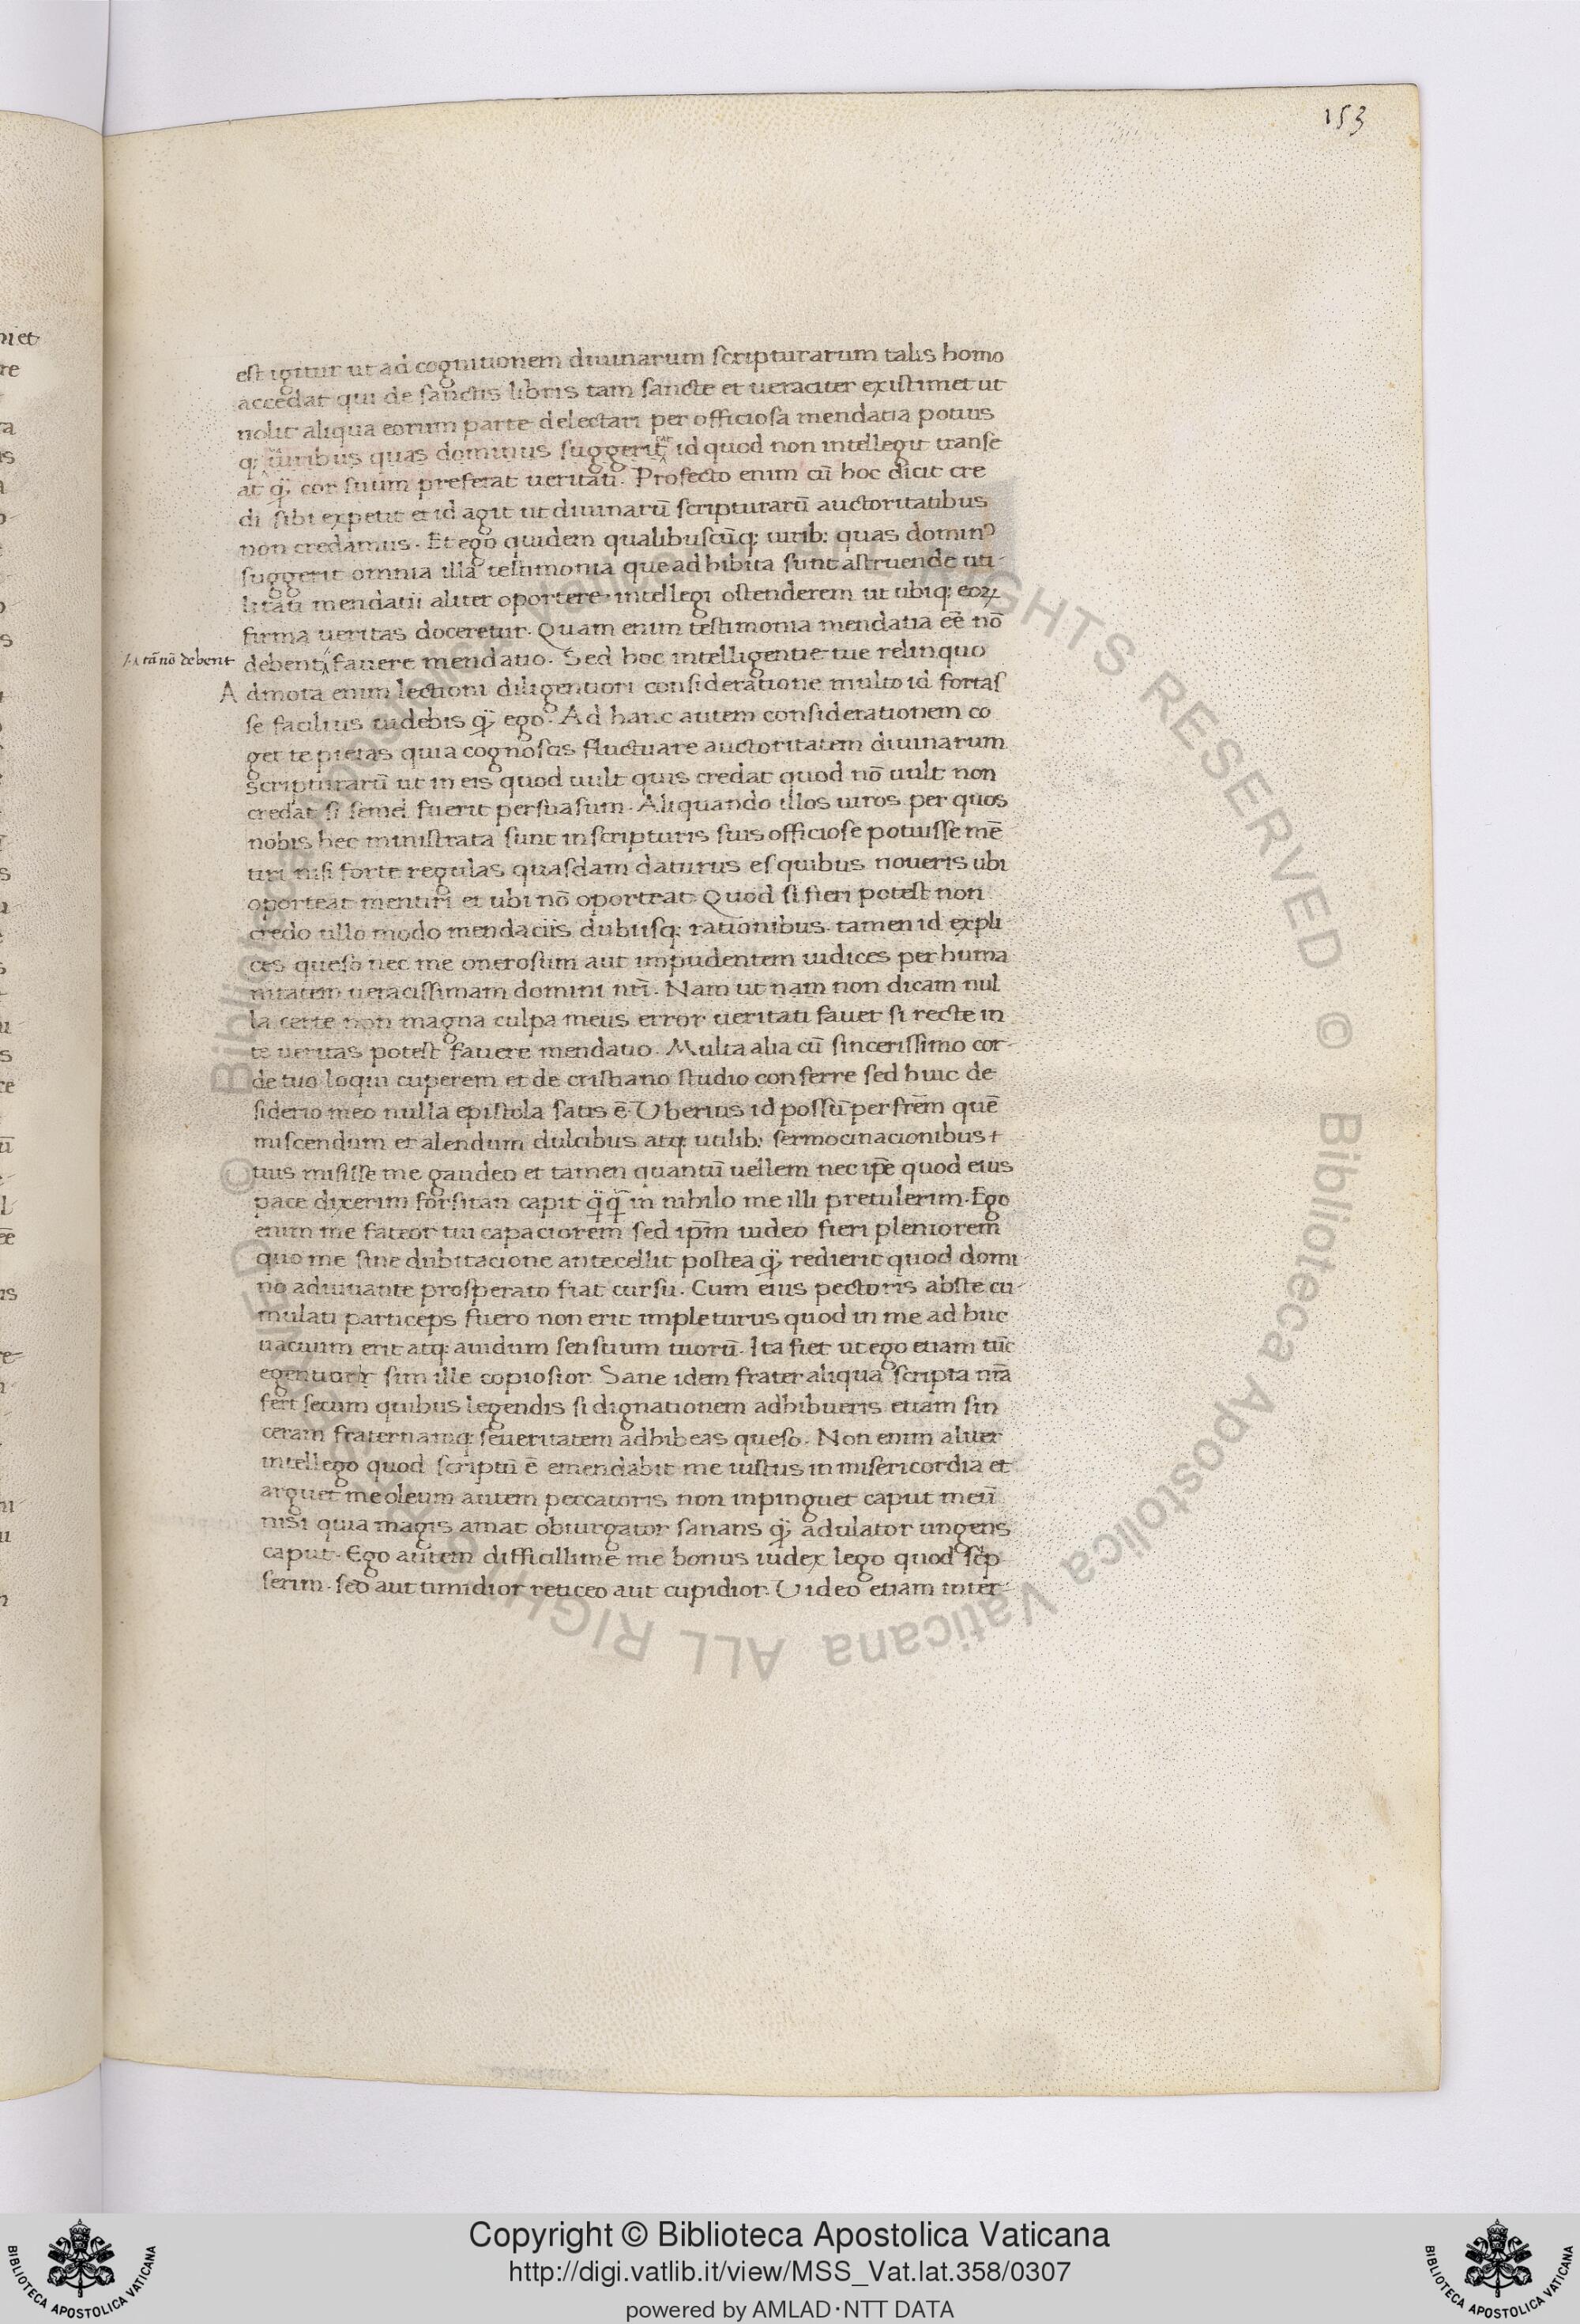 153
est igitur ut ad cognitionem diuinarum scripturarum talis homo
accedat qui de sanctis libris tam sancte et ueraciter existimet ut
nolit aliqua eorum parte delectari per officiosa mendatia potius
id quod non intellegit transe
at q̈ cor suum preferat ueritati. Profecto enim cū hoc dicit cre
di sibi expetit et id agit ut diuinarū scripturarū auctoritatibus
non credamus. Et ego quidem qualibuscūq; uirib; quas dominꝰ
suggerit omnia illa testimonia que adhibita sunt astruende uti-
litati mendatii aliter oportere intellegi ostenderem ut ubiq; eoꝝ
firma ueritas doceretur. Quam enim testimonia mendatia eē nō
ita nō debent
debent fauere mendatio. Sed hoc intelligentie tue relinquo
Admota enim lectioni diligentiori consideratione multo id fortas
se facilius uidebis q̈ ego. Ad hanc autem considerationem co
get te pietas quia cognoscis fluctuare auctoritatem diuinarum
scripturarū ut in eis quod uult quis credat quod nō uult non
credat si semel fuerit persuasum. Aliquando illos uiros per quos
nobis hec ministrata sunt in scripturis suis officiose potuisse mē
tiri nisi forte regulas quasdam daturus es quibus noueris ubi
oporteat mentiri et ubi nō oporteat. Quod si fieri potest non
credo ullo modo mendaciis dubiisq; rationibus. tamen id expli
ces queso nec me onerosum aut impudentem iudices per huma
nitatem ueracissimam domini nrī. Nam ut nam non dicam nul
la certe non magna culpa meus error ueritati fauet si recte in
te ueritas potest fauere mendatio. Multa alia cū sincerissimo cor-
de tuo loqui cuperem et de cristiano studio conferre sed huic de
siderio meo nulla epistola satis ē. Uberius id possū per frēm quē
miscendum et alendum dulcibus atq; utilib; sermocinacionibus
tuis misisse me gaudeo et tamen quantū uellem nec ipē quod eius
pace dixerim forsitan capit q̈q̈ in nihilo me illi pretulerim. Ego
enim me fateor tui capaciorem sed ipm̄ uideo fieri pleniorem
quo me sine dubitacione antecellit postea q̈ redierit quod domi
no adiuuante prosperato fiat cursu. Cum eius pectoris abste cu-
mulati particeps fuero non erit impleturus quod in me ad huc
uacuum erit atq; auidum sensuum tuorū. Ita fiet ut ego etiam tūc
egentior sim ille copiosior. Sane idem frater aliqua scripta nrā
fert secum quibus legendis si dignationem adhibueris etiam sin
ceram fraternamq; seueritatem adhibeas queso. Non enim aliter
intellego quod scriptū ē emendabit me iustus in misericordia et
arguet me oleum autem peccatoris non inpinguet caput meū
nisi quia magis amat obiurgator sanans q̈ adulator ungens
caput. Ego autem difficillime me bonus iudex lego quod scp̄
serim. sed aut timidior reticeo aut cupidior. Uideo etiam inter-
Copyright © Biblioteca Apostolica Vaticana
http://digi.vatlib.it/view/MSS_Vat.lat.358/0307
powered by AMLAD·NTT DATA
BIBLIOTECA APOSTOLICA VATICANA
BIBLIOTECA APOSTOLICA VATICANA
© Biblioteca Apostolica Vaticana ALL RIGHTS RESERVED © Biblioteca Apostolica Vaticana ALL RIGHTS RESERVED